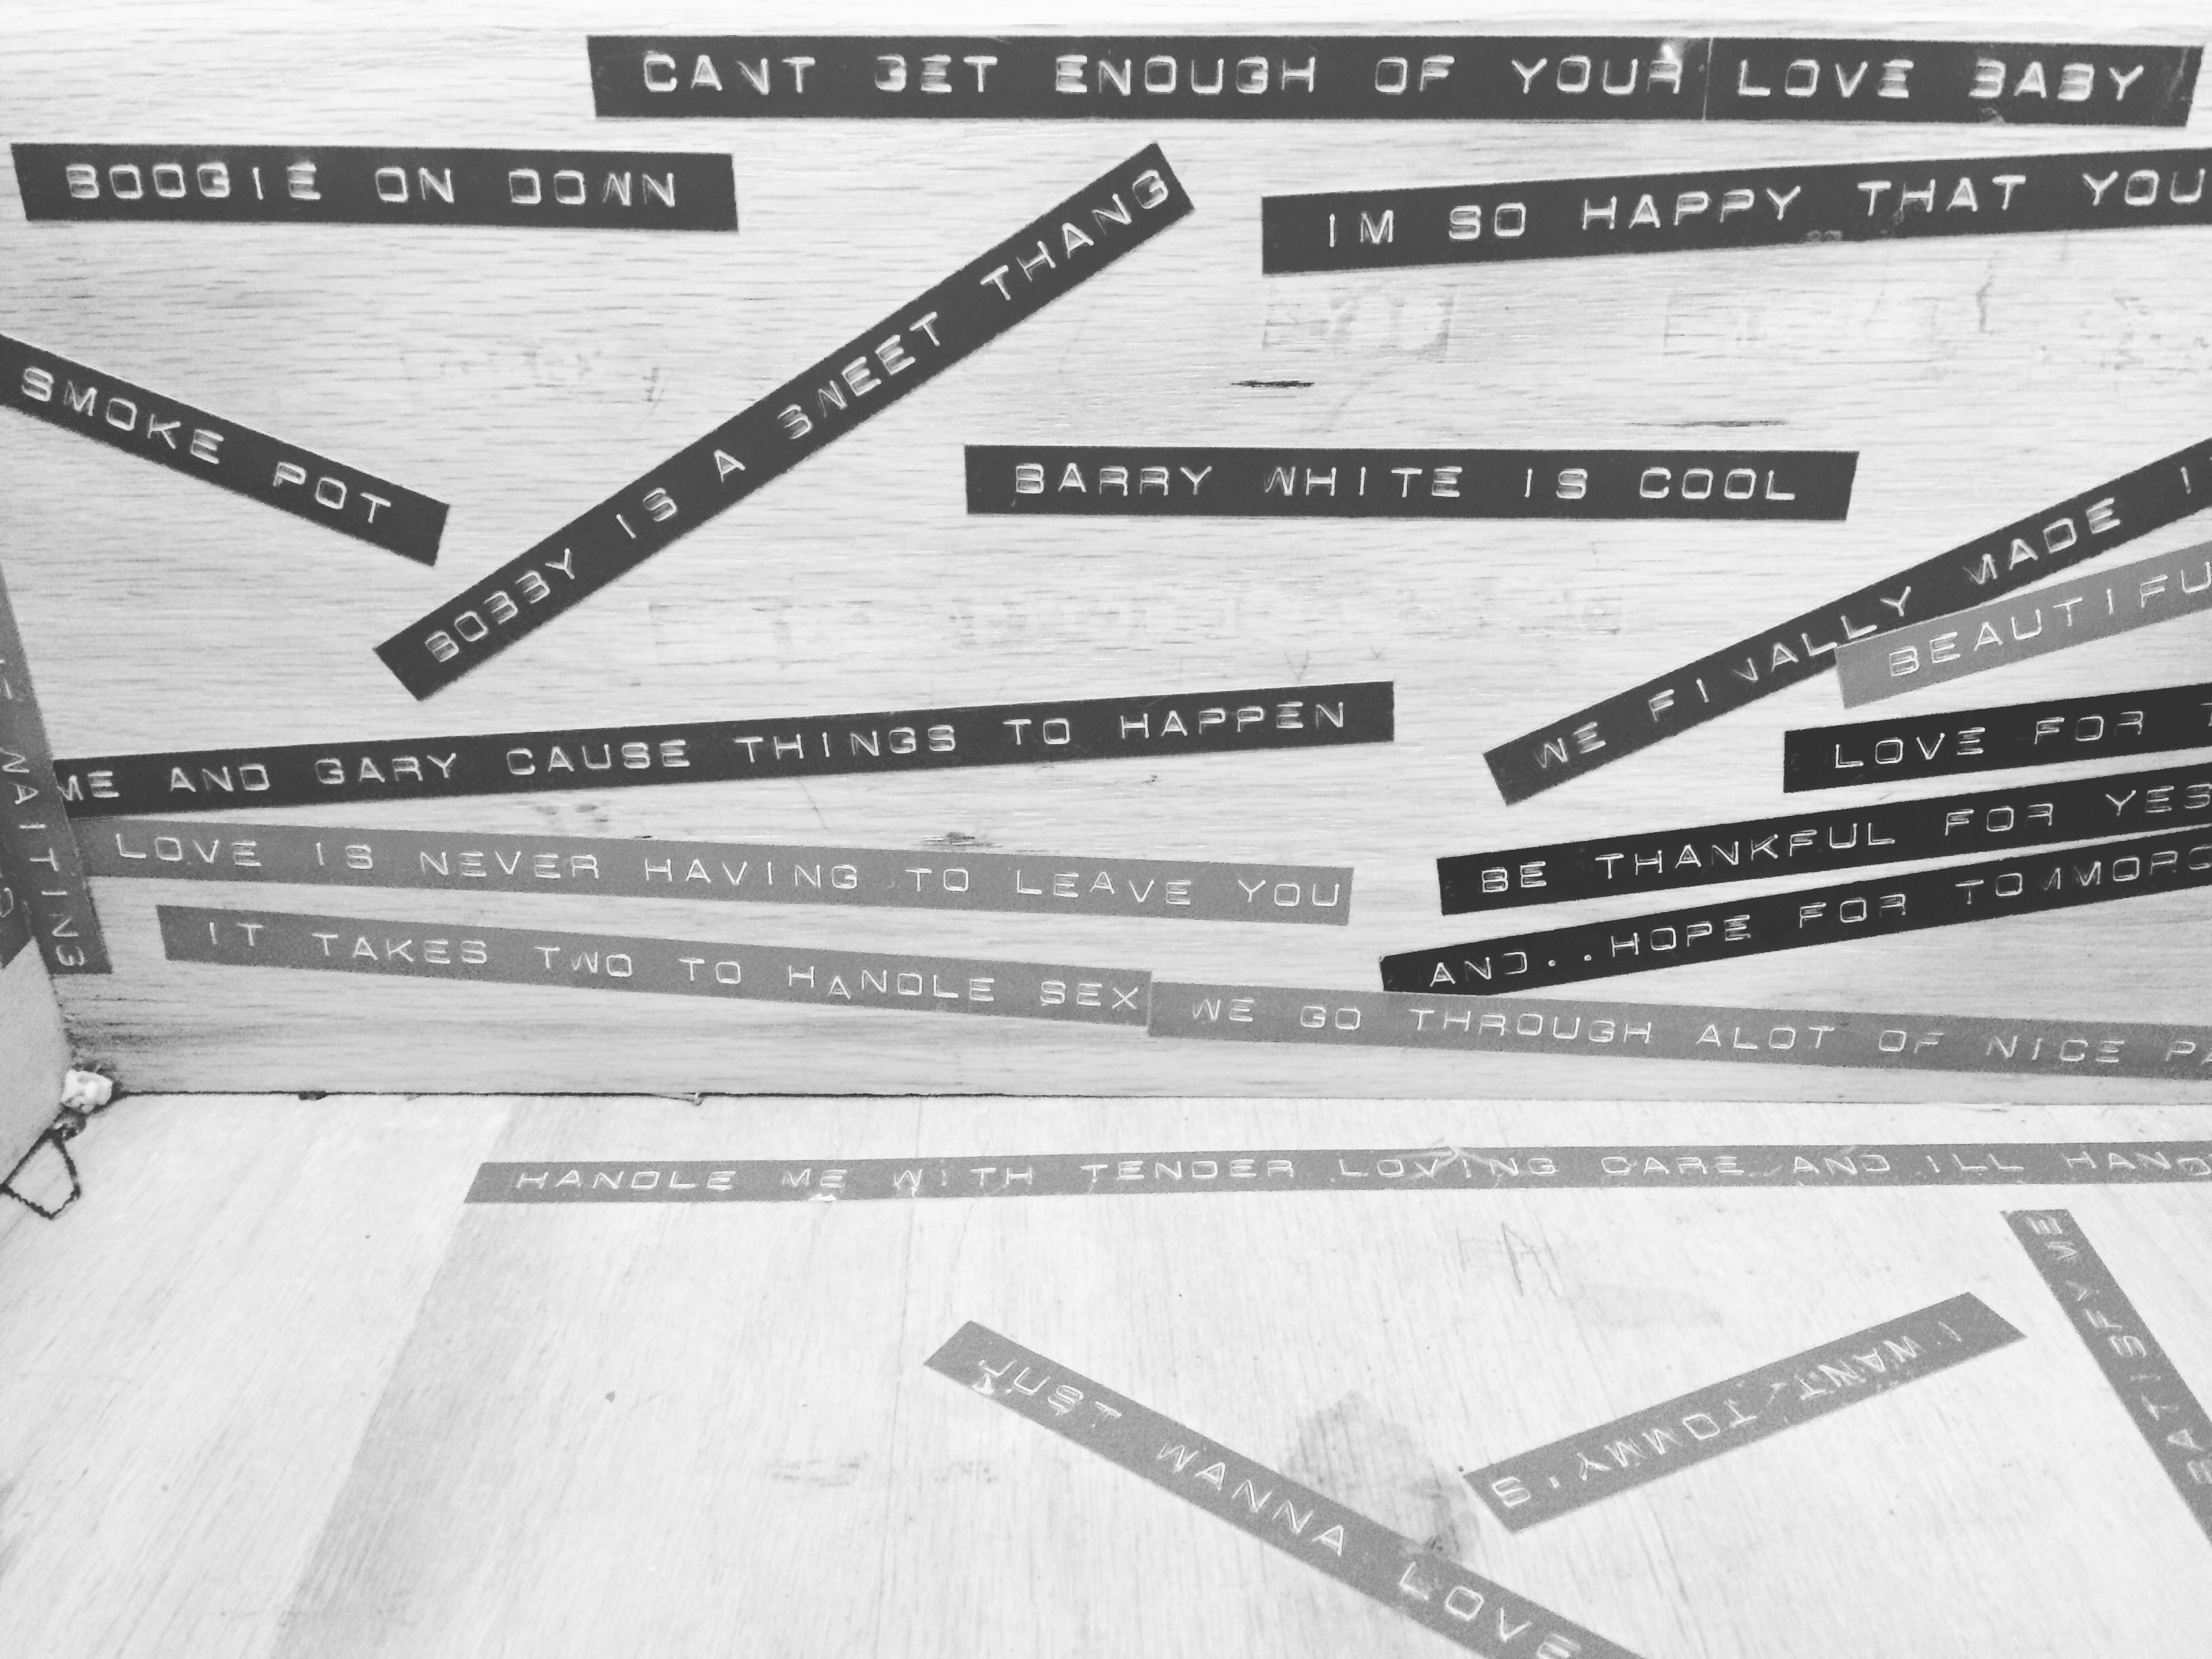 CANT GET ENOUGH OF YOUR LOVE BABY
BOOGIE ON DOWN
IM SO HAPPY THAT YOU
SMOKE POT
BOBBY IS A SWEET THANG
BARRY WHITE IS COOL
WE FINALLY MADE
BEAUTIFU
ME AND GARY CAUSE THINGS TO HAPPEN
LOVE FOR
WAITING
LOVE IS NEVER HAVING TO LEAVE YOU
BE THANKFUL FOR YES
AND..HOPE FOR TOMMORO
IT TAKES TWO TO HANDLE SEX
WE GO THROUGH ALOT OF NICE
HANDLE ME WITH TENDER LOVING CARE AND ILL HAND
SATISFY ME
I WANT TOMMY'S
JUST WANNA LOVE